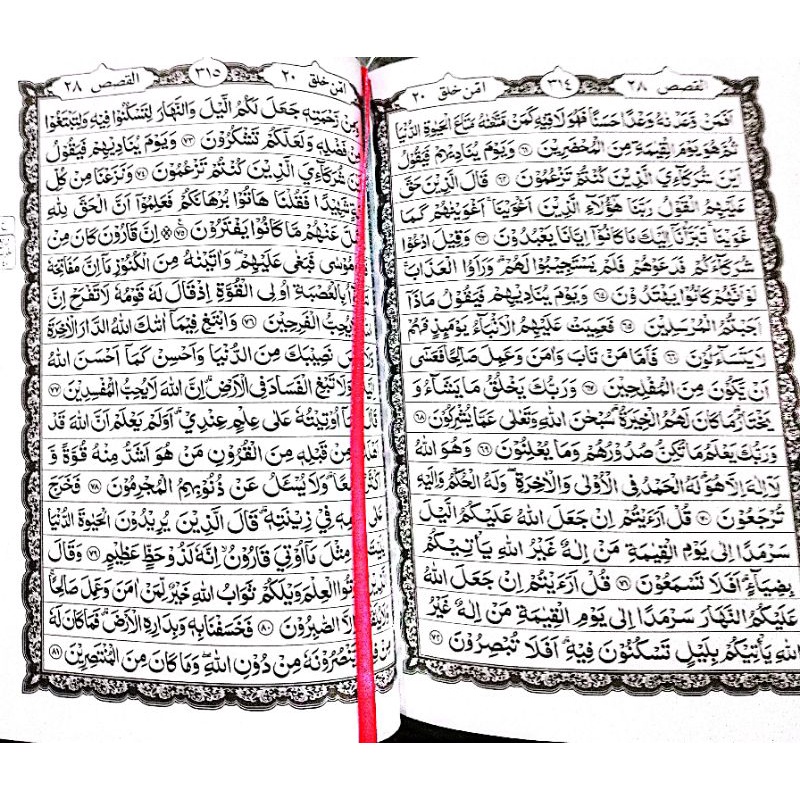 القصص ٢٨ ٣١٤ امّن خلق ٢٠
اَفَمَنْ وَّعَدْنٰهُ وَعْدًا حَسَنًا فَهُوَ لَاقِيْهِ كَمَنْ مَّتَّعْنٰهُ مَتَاعَ الْحَيٰوةِ الدُّنْيَا
ثُمَّ هُوَ يَوْمَ الْقِيٰمَةِ مِنَ الْمُحْضَرِيْنَ ٦١ وَيَوْمَ يُنَادِيْهِمْ فَيَقُوْلُ
اَيْنَ شُرَكَآءِيَ الَّذِيْنَ كُنْتُمْ تَزْعُمُوْنَ ٦٢ قَالَ الَّذِيْنَ حَقَّ
عَلَيْهِمُ الْقَوْلُ رَبَّنَا هٰٓؤُلَآءِ الَّذِيْنَ اَغْوَيْنَا ۚ اَغْوَيْنٰهُمْ كَمَا
غَوَيْنَا ۚ تَبَرَّاْنَآ اِلَيْكَ مَا كَانُوْٓا اِيَّانَا يَعْبُدُوْنَ ٦٣ وَقِيْلَ ادْعُوْا
شُرَكَآءَكُمْ فَدَعَوْهُمْ فَلَمْ يَسْتَجِيْبُوْا لَهُمْ وَرَاَوُا الْعَذَابَ ۚ
لَوْ اَنَّهُمْ كَانُوْا يَهْتَدُوْنَ ٦٤ وَيَوْمَ يُنَادِيْهِمْ فَيَقُوْلُ مَاذَآ
اَجَبْتُمُ الْمُرْسَلِيْنَ ٦٥ فَعَمِيَتْ عَلَيْهِمُ الْاَنْۢبَآءُ يَوْمَئِذٍ فَهُمْ
لَا يَتَسَآءَلُوْنَ ٦٦ فَاَمَّا مَنْ تَابَ وَاٰمَنَ وَعَمِلَ صَالِحًا فَعَسٰٓى
اَنْ يَّكُوْنَ مِنَ الْمُفْلِحِيْنَ ٦٧ وَرَبُّكَ يَخْلُقُ مَا يَشَآءُ وَ
يَخْتَارُ ۗ مَا كَانَ لَهُمُ الْخِيَرَةُ ۗ سُبْحٰنَ اللّٰهِ وَتَعٰلٰى عَمَّا يُشْرِكُوْنَ ٦٨
وَرَبُّكَ يَعْلَمُ مَا تُكِنُّ صُدُوْرُهُمْ وَمَا يُعْلِنُوْنَ ٦٩ وَهُوَ اللّٰهُ
لَآ اِلٰهَ اِلَّا هُوَ ۗ لَهُ الْحَمْدُ فِى الْاُوْلٰى وَالْاٰخِرَةِ ۖ وَلَهُ الْحُكْمُ وَاِلَيْهِ
تُرْجَعُوْنَ ٧٠ قُلْ اَرَءَيْتُمْ اِنْ جَعَلَ اللّٰهُ عَلَيْكُمُ الَّيْلَ
سَرْمَدًا اِلٰى يَوْمِ الْقِيٰمَةِ مَنْ اِلٰهٌ غَيْرُ اللّٰهِ يَاْتِيْكُمْ
بِضِيَآءٍ ۗ اَفَلَا تَسْمَعُوْنَ ٧١ قُلْ اَرَءَيْتُمْ اِنْ جَعَلَ اللّٰهُ
عَلَيْكُمُ النَّهَارَ سَرْمَدًا اِلٰى يَوْمِ الْقِيٰمَةِ مَنْ اِلٰهٌ غَيْرُ
اللّٰهِ يَاْتِيْكُمْ بِلَيْلٍ تَسْكُنُوْنَ فِيْهِ ۗ اَفَلَا تُبْصِرُوْنَ ٧٢
امّن خلق ٢٠ ٣١٥ القصص ٢٨
وَمِنْ رَّحْمَتِهٖ جَعَلَ لَكُمُ الَّيْلَ وَالنَّهَارَ لِتَسْكُنُوْا فِيْهِ وَلِتَبْتَغُوْا
مِنْ فَضْلِهٖ وَلَعَلَّكُمْ تَشْكُرُوْنَ ٧٣ وَيَوْمَ يُنَادِيْهِمْ فَيَقُوْلُ
شُرَكَآءِيَ الَّذِيْنَ كُنْتُمْ تَزْعُمُوْنَ ٧٤ وَنَزَعْنَا مِنْ كُلِّ
شَهِيْدًا فَقُلْنَا هَاتُوْا بُرْهَانَكُمْ فَعَلِمُوْٓا اَنَّ الْحَقَّ لِلّٰهِ
عَنْهُمْ مَّا كَانُوْا يَفْتَرُوْنَ ٧٥ اِنَّ قَارُوْنَ كَانَ مِنْ
مُوْسٰى فَبَغٰى عَلَيْهِمْ ۖ وَاٰتَيْنٰهُ مِنَ الْكُنُوْزِ مَآ اِنَّ مَفَاتِحَهٗ
بِالْعُصْبَةِ اُولِى الْقُوَّةِ اِذْ قَالَ لَهٗ قَوْمُهٗ لَا تَفْرَحْ اِنَّ
يُحِبُّ الْفَرِحِيْنَ ٧٦ وَابْتَغِ فِيْمَآ اٰتٰىكَ اللّٰهُ الدَّارَ الْاٰخِرَةَ
نَصِيْبَكَ مِنَ الدُّنْيَا وَاَحْسِنْ كَمَآ اَحْسَنَ اللّٰهُ
وَلَا تَبْغِ الْفَسَادَ فِى الْاَرْضِ ۗ اِنَّ اللّٰهَ لَا يُحِبُّ الْمُفْسِدِيْنَ ٧٧
اُوْتِيْتُهٗ عَلٰى عِلْمٍ عِنْدِيْ ۗ اَوَلَمْ يَعْلَمْ اَنَّ اللّٰهَ قَدْ
مِنْ قَبْلِهٖ مِنَ الْقُرُوْنِ مَنْ هُوَ اَشَدُّ مِنْهُ قُوَّةً وَّ
وَلَا يُسْـَٔلُ عَنْ ذُنُوْبِهِمُ الْمُجْرِمُوْنَ ٧٨ فَخَرَجَ
فِيْ زِيْنَتِهٖ ۗ قَالَ الَّذِيْنَ يُرِيْدُوْنَ الْحَيٰوةَ الدُّنْيَا
مِثْلَ مَآ اُوْتِيَ قَارُوْنُ ۙ اِنَّهٗ لَذُوْ حَظٍّ عَظِيْمٍ ٧٩ وَقَالَ
الْعِلْمَ وَيْلَكُمْ ثَوَابُ اللّٰهِ خَيْرٌ لِّمَنْ اٰمَنَ وَعَمِلَ صَالِحًا ۚ
اِلَّا الصّٰبِرُوْنَ ٨٠ فَخَسَفْنَا بِهٖ وَبِدَارِهِ الْاَرْضَ ۗ فَمَا كَانَ لَهٗ
يَّنْصُرُوْنَهٗ مِنْ دُوْنِ اللّٰهِ ۖ وَمَا كَانَ مِنَ الْمُنْتَصِرِيْنَ ٨١